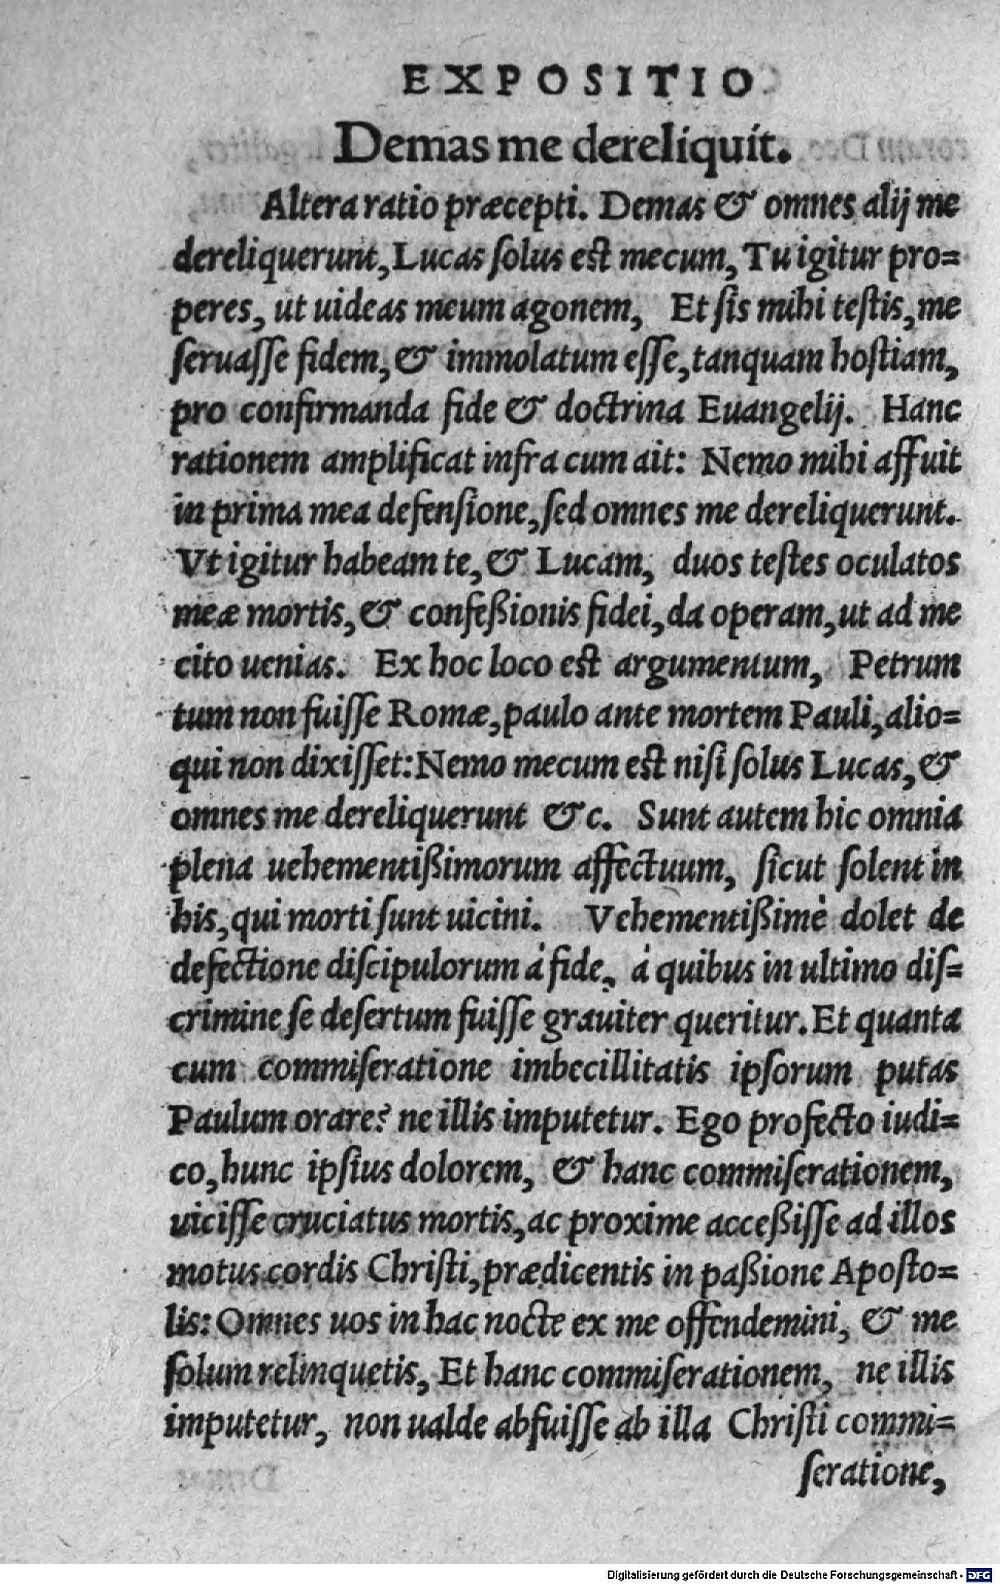 EXPOSITIO
Demas me dereliquit.
Altera ratio præcepti. Demas & omnes alij me
dereliquerunt, Lucas ſolus eſt mecum, Tu igitur pro=
peres, ut uideas meum agonem, Et ſis mihi teſtis, me
ſeruaſſe fidem, & immolatum eſſe, tanquam hoſtiam,
pro confirmanda fide & doctrina Euangelij. Hanc
rationem amplificat infra cum ait: Nemo mihi affuit
in prima mea defenſione, ſed omnes me dereliquerunt.
Vt igitur habeam te, & Lucam, duos teſtes oculatos
meæ mortis, & confeßionis fidei, da operam, ut ad me
cito uenias. Ex hoc loco eſt argumentum, Petrum
tum non fuiſſe Romæ, paulo ante mortem Pauli, alio=
qui non dixiſſet: Nemo mecum eſt niſi ſolus Lucas, &
omnes me dereliquerunt &c. Sunt autem hic omnia
plena uehementißimorum affectuum, ſicut ſolent in
his, qui morti ſunt uicini. Vehementißimè dolet de
defectione diſcipulorum à fide, à quibus in ultimo diſ=
crimine ſe deſertum fuiſſe grauiter queritur. Et quanta
cum commiſeratione imbecillitatis ipſorum putas
Paulum orare? ne illis imputetur. Ego profecto iudi=
co, hunc ipſius dolorem, & hanc commiſerationem,
uiciſſe cruciatus mortis, ac proxime acceßiſſe ad illos
motus cordis Chriſti, prædicentis in paßione Apoſto=
lis: Omnes uos in hac nocte ex me offendemini, & me
ſolum relinquetis, Et hanc commiſerationem, ne illis
imputetur, non ualde abfuiſſe ab illa Chriſti commi=
ſeratione,
Digitalisierung gefördert durch die Deutsche Forschungsgemeinschaft - DFG